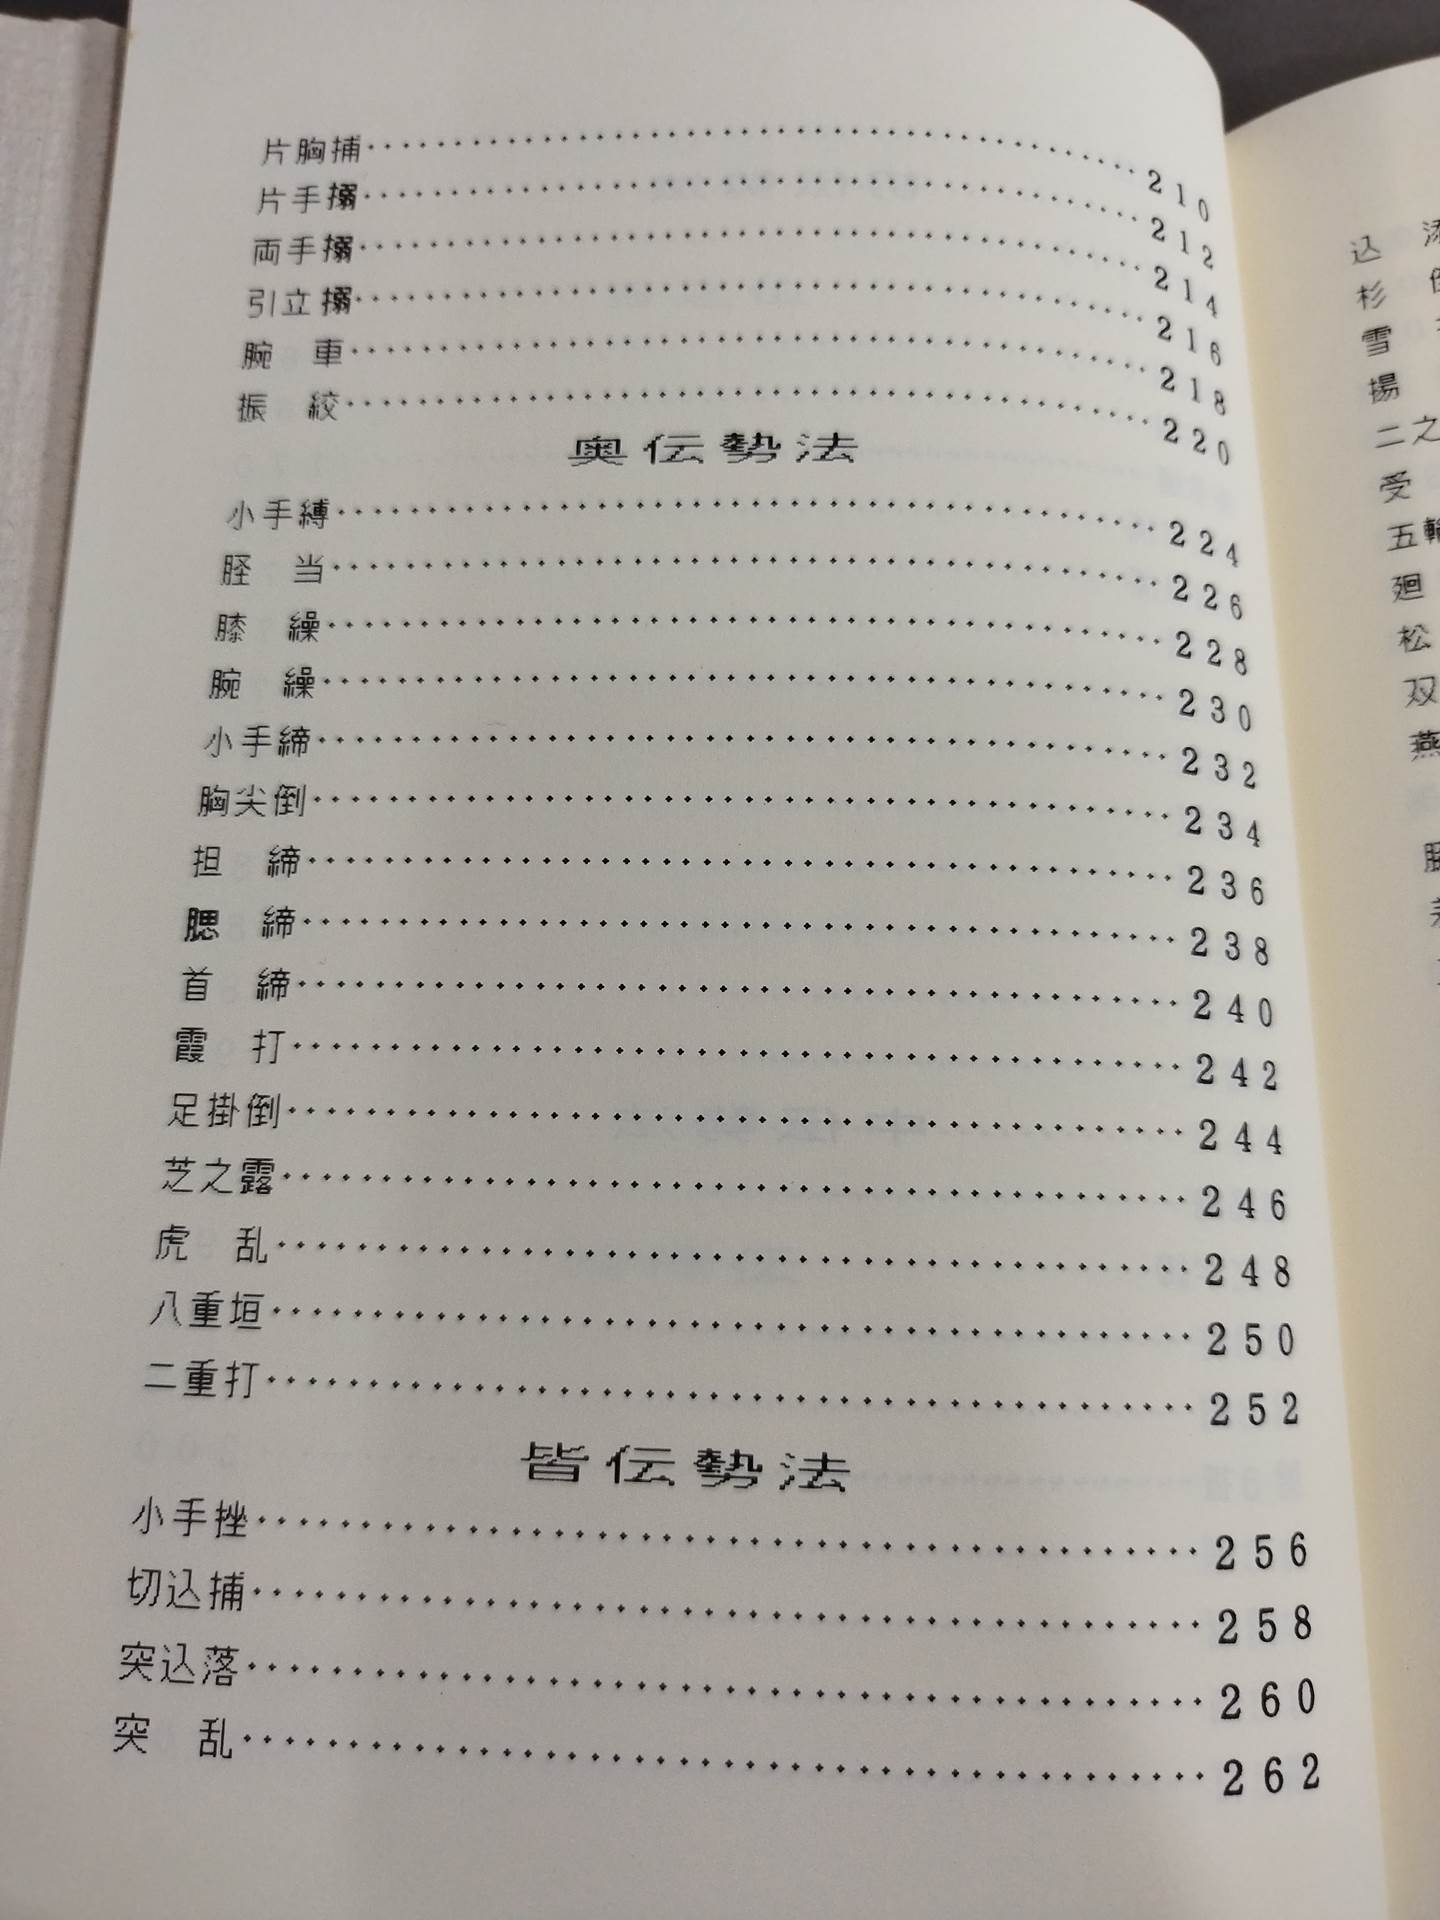 片胸捕‥‥‥‥‥‥‥‥‥‥‥‥‥‥‥‥210
片手搦‥‥‥‥‥‥‥‥‥‥‥‥‥‥‥‥212
両手搦‥‥‥‥‥‥‥‥‥‥‥‥‥‥‥‥214
引立搦‥‥‥‥‥‥‥‥‥‥‥‥‥‥‥‥216
腕　車‥‥‥‥‥‥‥‥‥‥‥‥‥‥‥‥218
振　絞‥‥‥‥‥‥‥‥‥‥‥‥‥‥‥‥220
奥伝勢法
小手縛‥‥‥‥‥‥‥‥‥‥‥‥‥‥‥‥224
胫　当‥‥‥‥‥‥‥‥‥‥‥‥‥‥‥‥226
膝　繰‥‥‥‥‥‥‥‥‥‥‥‥‥‥‥‥228
腕　繰‥‥‥‥‥‥‥‥‥‥‥‥‥‥‥‥230
小手締‥‥‥‥‥‥‥‥‥‥‥‥‥‥‥‥232
胸尖倒‥‥‥‥‥‥‥‥‥‥‥‥‥‥‥‥234
担　締‥‥‥‥‥‥‥‥‥‥‥‥‥‥‥‥236
腮　締‥‥‥‥‥‥‥‥‥‥‥‥‥‥‥‥238
首　締‥‥‥‥‥‥‥‥‥‥‥‥‥‥‥‥240
霞　打‥‥‥‥‥‥‥‥‥‥‥‥‥‥‥‥242
足掛倒‥‥‥‥‥‥‥‥‥‥‥‥‥‥‥‥244
芝之露‥‥‥‥‥‥‥‥‥‥‥‥‥‥‥‥246
虎　乱‥‥‥‥‥‥‥‥‥‥‥‥‥‥‥‥248
八重垣‥‥‥‥‥‥‥‥‥‥‥‥‥‥‥‥250
二重打‥‥‥‥‥‥‥‥‥‥‥‥‥‥‥‥252
皆伝勢法
小手挫‥‥‥‥‥‥‥‥‥‥‥‥‥‥‥‥256
切込捕‥‥‥‥‥‥‥‥‥‥‥‥‥‥‥‥258
突込落‥‥‥‥‥‥‥‥‥‥‥‥‥‥‥‥260
突　乱‥‥‥‥‥‥‥‥‥‥‥‥‥‥‥‥262
込　添
杉
雪
揚
二之
受
五輪
廻
松
双
燕